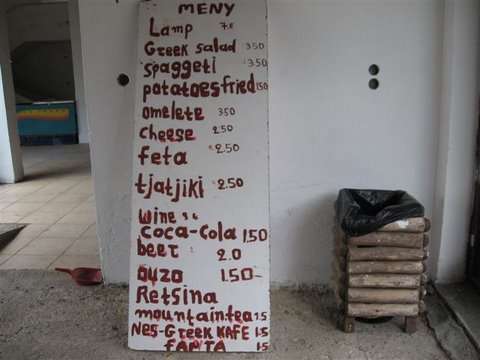 MENY
Lamp
Greek salad 3.50
spaggeti 3.50
potatoesfried 1.50
omelete 3.50
cheese 2.50
feta 2.50
tjatjiki 2.50
wine
coca-cola 1.50
beer 2.0
ouzo 1.50
Retsina
mountaintea 1.5
NES-Greek KAFE 1.5
FANTA 1.5